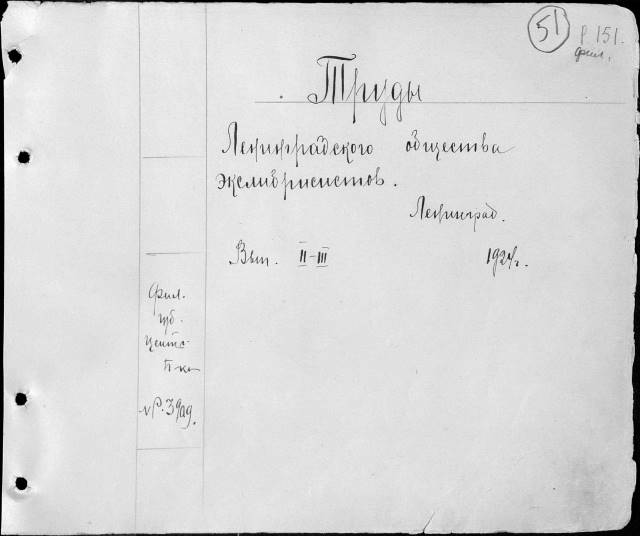 51
р 151.
фил.
Труды
Ленинградского общества
экслибрисистов.
Ленинград.
Вып. II-III
1924г.
фил.
Центр
П-ка